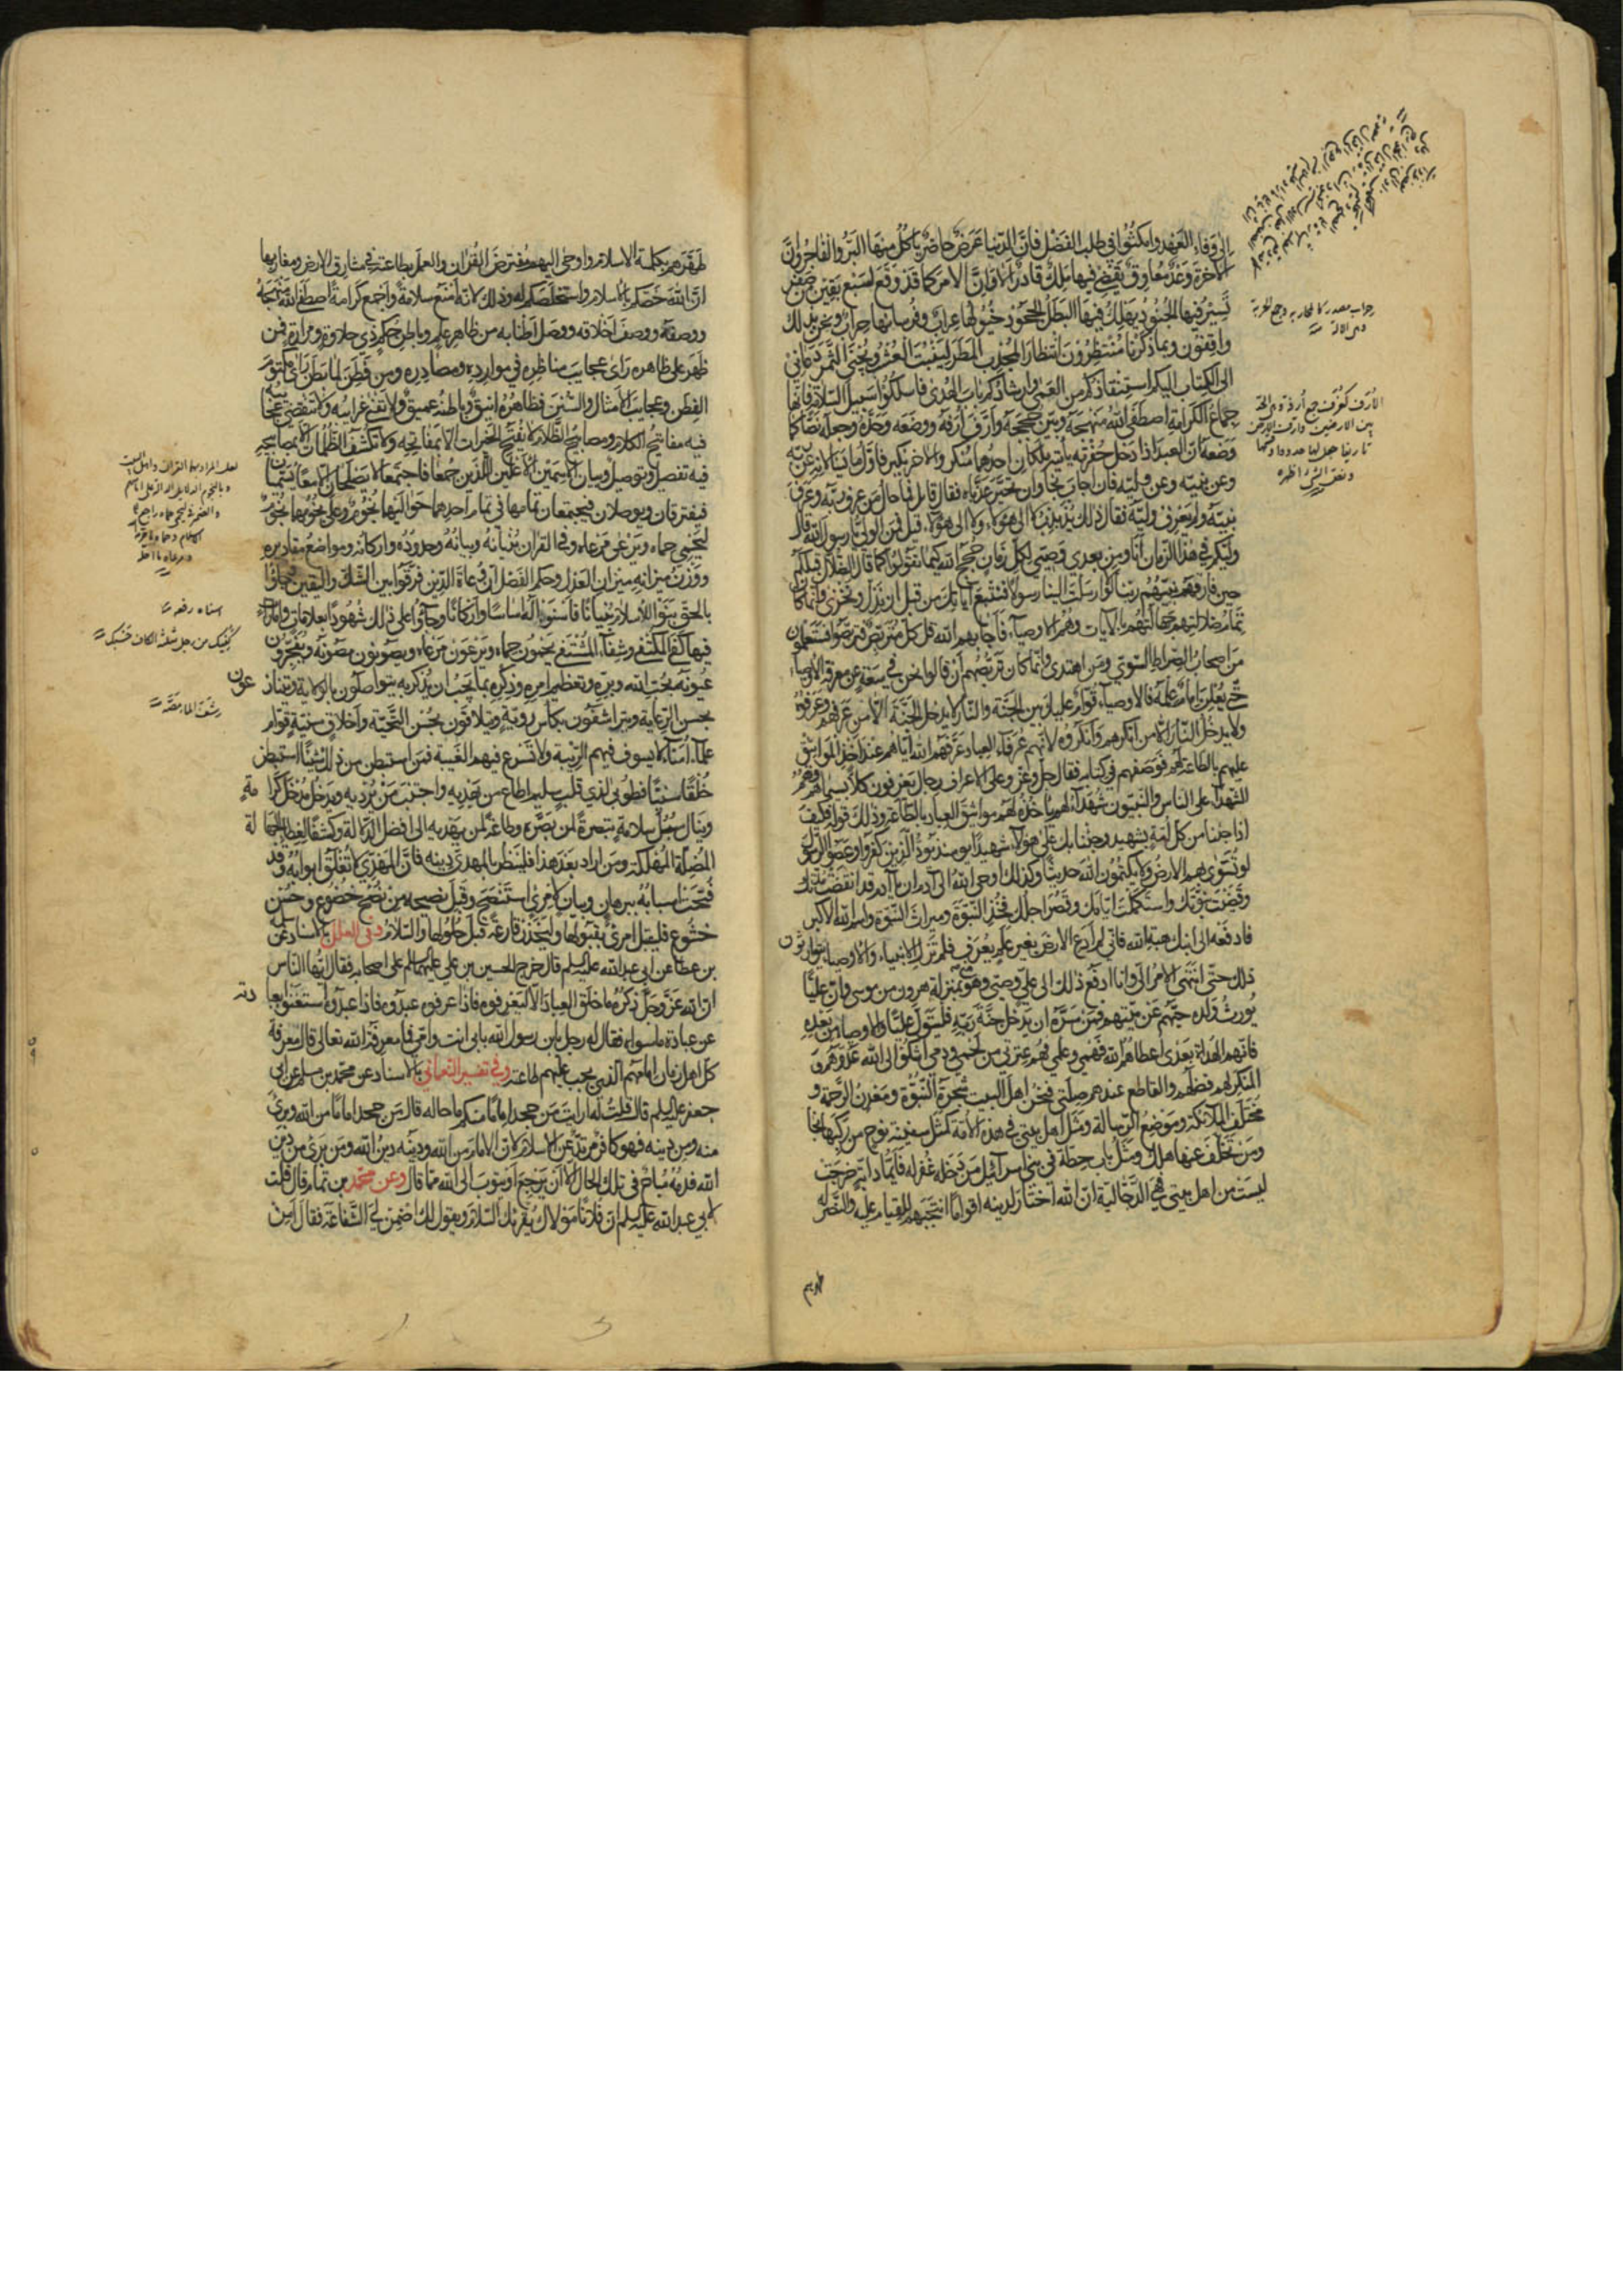 الى وفاء العهد وامكثوا في طلب الفضل فان الدنيا عرض حاضر ياكل منها البر والفاجر وان
الآخرة وعد صادق يقضي فيها ملك قادر الا وان الامر كما قد وقع لسبع بقين من صفر
تسير فيها الجنود يهلك فيها البطل الجحود خيولها عراب وفرسانها حراب ونحن بذلك
واقفون وبما ذكرنا منتظرون انتظار المجدب المطر لينبت العشب ويجنى الثمر دعاني
الى الكتاب اليكم استنقاذكم من العمى وارشادكم باب الهدى فاسلكوا سبيل السلامة فانها
جماع الكرامة اصطفى الله منهجه وبين حججه وارف ارفه ووصفه وحده وجعله نصا كما
وصفه ان العبد اذا دخل حفرته ياتيه ملكان احدهما منكر والآخر نكير فاول ما يسالانه عن ربه
وعن نبيه وعن وليه فان اجاب نجا وان تحير عذباه فقال قائل فما حال من عرف ربه وعرف
نبيه ولم يعرف وليه فقال ذلك مذبذب لا الى هؤلاء ولا الى هؤلاء قيل فمن الولي يا رسول الله قال
وليكم في هذا الزمان انا ومن بعدي وصيي لكل زمان حجج الله كيما تقولوا كما قال الضلال قبلكم
حين فارقهم نبيهم ربنا لولا ارسلت الينا رسولا فنتبع آياتك من قبل ان نذل ونخزى وانما كان
تمام ضلالتهم جهالتهم بالآيات وهم الاوصياء فاجابهم الله قل كل متربص فتربصوا فستعلمون
من اصحاب الصراط السوي ومن اهتدى وانما كان تربصهم ان قالوا نحن في سعة عن معرفة الاوصياء
حتى يعلن امام علمه فالاوصياء قوام عليكم بين الجنة والنار لا يدخل الجنة الا من عرفهم وعرفوه
ولا يدخل النار الا من انكرهم وانكروه لانهم عرفاء العباد عرفهم الله اياهم عند اخذ المواثيق
عليهم بالطاعة لهم فوصفهم في كتابه فقال جل وعز وعلى الاعراف رجال يعرفون كلا بسيماهم وهم
الشهداء على الناس والنبيون شهداء لهم باخذه لهم مواثيق العباد بالطاعة وذلك قوله فكيف
اذا جئنا من كل امة بشهيد وجئنا بك على هؤلاء شهيدا يومئذ يود الذين كفروا وعصوا الرسول
لو تسوى بهم الارض ولا يكتمون الله حديثا وكذلك اوحى الله الى آدم ان يا آدم قد انقضت مدتك
وقضيت نبوتك واستكملت ايامك وحضر اجلك فخذ النبوة وميراث النبوة واسم الله الاكبر
فادفعه الى ابنك هبة الله فاني لم ادع الارض بغير علم يعرف فلم تزل الانبياء والاوصياء يتوارثون
ذلك حتى انتهى الامر الي وانا ادفع ذلك الى علي وصيي وهو مني بمنزلة هرون من موسى وان عليا
يورث ولده حيهم عن ميتهم فمن سره ان يدخل جنة ربه فليتول عليا والاوصياء من بعده
فانهم الهداة بعدي اعطاهم الله فهمي وعلمي فهم عترتي من لحمي ودمي اشكو الى الله عدوهم و
المنكر لهم فضلهم والقاطع عنهم صلتي فنحن اهل البيت شجرة النبوة ومعدن الرحمة و
مختلف الملائكة وموضع الرسالة ومثل اهل بيتي في هذه الامة كمثل سفينة نوح من ركبها نجا
ومن تخلف عنها هلك ومثل باب حطة في بني اسرائيل من دخله غفر له فايما راية خرجت
ليست من اهل بيتي فهي الدجالية ان الله اختار لدينه اقواما انتجبهم للقيام عليه والنصر له
طهرهم
طهرهم بكلمة الاسلام واوحى اليهم مفترض القرآن والعمل بطاعته في مشارق الارض ومغاربها
ان الله خصكم بالاسلام واستخلصكم له وذلك لانه امنع سلامة واجمع كرامة اصطفى الله منهجه
ووصفه ووصف اخلاقه ووصل اطنابه من ظاهر علم وباطن حكم ذي حلاوة ومرارة فمن
ظهر على ظاهره راى عجايب مناظره في موارده ومصادره ومن فطن لما بطن راى مكتوم
الفطن وعجايب الامثال والسنن فظاهره انيق وباطنه عميق ولا تفنى غرائبه ولا تنقضي عجائبه
فيه مفاتيح الكلام ومصابيح الظلام لا يفتح الخيرات الا بمفاتيحه ولا تكشف الظلمات الا بمصابيحه
فيه تفصيل وتوصيل وبيان الاسمين الاعلين اللذين جمعا فاجتمعا لا يصلحان الا معا يسميان
فيفترقان ويوصلان فيجتمعان تمامهما في تمام احدهما حواليها نجوم وعلى نجومها نجوم
ليحمي حماه ويرعى مرعاه وفي القرآن تبيانه وبيانه وحدوده واركانه ومواضع مقاديره
ووزن ميزانه ميزان العدل وحكم الفصل ان دعاة الدين فرقوا بين الشك واليقين وجاؤا
بالحق بنوا للاسلام بنيانا فاسسوا له اساسا واركانا وجاؤا على ذلك شهودا بعلامات وامارات
فيها كفى المكتفى وشفاء المشتفى يحمون حماه ويرعون مرعاه ويصونون مصونه ويفجرون
عيونه بحب الله وبره وتعظيم امره وذكره بما يحب ان يذكر به يتواصلون بالولاية ويتنازعون
بحسن الرعاية ويتراشفون بكاس روية ويتلاقون بحسن التحية واخلاق سنية قوام
علماء امناء لا يسوق فيهم الريبة ولا تشرع فيهم الغيبة فمن استبطن من ذلك شيئا استبطن
خلقا سنيا فطوبى لذي قلب سليم اطاع من يهديه واجتنب من يرديه ويدخل مدخل كرامة
وينال سبل سلامة تبصرة لمن بصره وطاعة لمن يهديه الى افضل الدلالة وكشف الغطاء الجهالة
المضلة المهلكة ومن اراد بعد هذا فليظهر بالهدى دينه فان الهدى لا تغلق ابوابه وقد
فتحت اسبابه ببرهان وبيان لامرئ استنصح وقبل نصيحة من نصح خضوع وحسن
خشوع فليقبل امرئ بقبولها وليحذر قارعة قبل حلولها والسلام وفي العلل بالاسناد عن سلمة
بن عطا عن ابي عبد الله عليه السلم قال خرج الحسين بن علي عليهما السلم على اصحابه فقال ايها الناس
ان الله عز وجل ذكره ما خلق العباد الا ليعرفوه فاذا عرفوه عبدوه فاذا عبدوه استغنوا بعبادته
عن عبادة ما سواه فقال له رجل يابن رسول الله بابي انت وامي فما معرفة الله تعالى قال معرفة
كل اهل زمان امامهم الذي يجب عليهم طاعته وفي تفسير النعماني بالاسناد عن محمد بن مسلم عن ابي
جعفر عليه السلم قال قلت له ارايت من جحد اماما منكم ما حاله قال من جحد اماما من الله وبرئ
منه ومن دينه فهو كافر مرتد عن الاسلام لان الامام من الله ودينه دين الله ومن برئ من دين
الله فدمه مباح في تلك الحال الا ان يرجع او يتوب الى الله مما قال وعن محمد بن تمام قال قلت
لابي عبد الله عليه السلم ان فلانا مولاك يقرئك السلام ويقول لك اضمن لي الشفاعة فقال امن